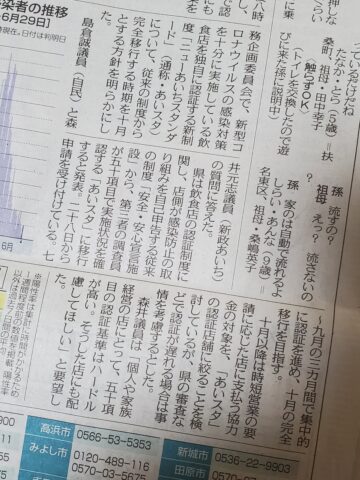 押しな
ていたけどね
たなか・とら（5歳）＝扶
桑町、祖母・田中幸子
触らずOK
（トイレを交換したので遊
びに来た孫に説明中）
孫　流すの？
祖母　えっ？　流さないの
？
孫　家のは自動で流れるよ
しらい・あんな（9歳）＝
名東区、祖母・桑嶋英子
に乗
八時
務企画委員会で、新型コ
ロナウイルスの感染対策
を十分に実施している飲
食店を独自に認証する新制
度「ニューあいちスタンダ
ード」（通称・あいスタ）
について、従来の制度から
完全移行する時期を十月
とする方針を明らかにし
た。
島倉誠議員（自民）と森
井元志議員（新政あいち）
の質問に答えた。
県は飲食店の認証制度に
関し、店側が感染防止の取
り組みを自己申告する従来
の制度「安全・安心宣言施
設」から、第三者の調査員
が五十項目で実施状況を確
認する「あいスタ」に移行
すると発表。二十八日から
申請を受け付けている。七
〜九月の三カ月間で集中的
に認証を進め、十月の完全
移行を目指す。
十月以降は時短営業の要
請に応じた店に支払う協力
金の対象を、「あいスタ」
の認証店舗に絞ることを検
討しているが、県の審査な
どで認証が遅れる場合は事
情を考慮するとした。
森井議員は「個人や家族
経営の店にとって、五十項
目の認証基準はハードル
が高い。そうした店にも配
慮してほしい」と要望し
た。
染者の推移
6月29日】
時現在。日付は判明日
6月
高浜市 0566-53-5353
みよし市 0120-489-116
0570-03-5675
新城市 0536-22-9903
田原市